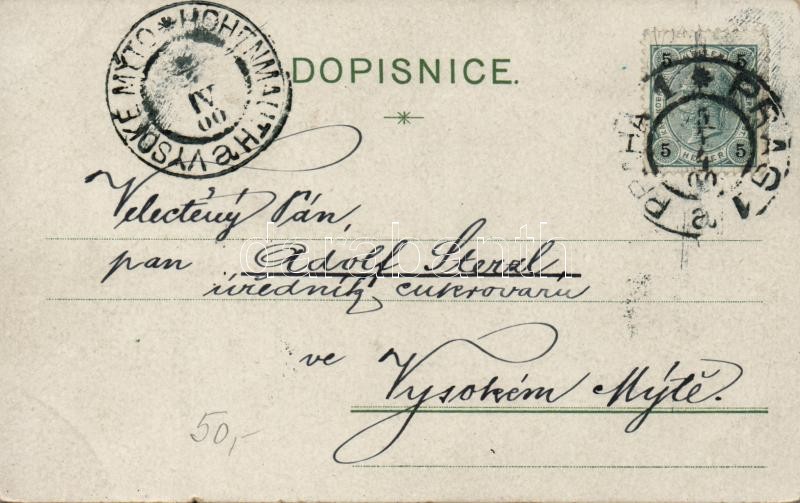 DOPISNICE.
HOHENMAUTH VYSOKÉ MÝTO
IV
00
PRAG 1 PRAHA 1
5 5
5 5
HELLER
Velectěný Pán,
pan Adolf Sterzl,
úředník cukrovaru
ve Vysokém Mýtě.
50,-
darabanth